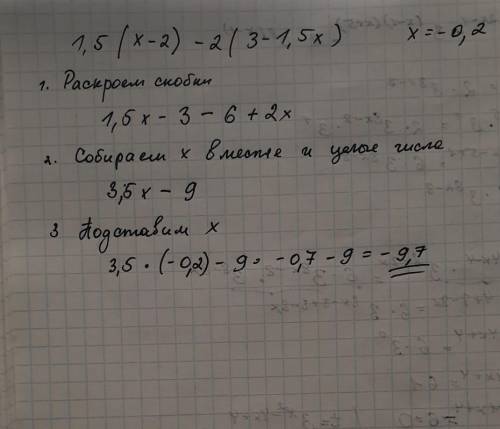 1,5 (x-2) - 2 (3-1,5x)      x = -0,2
1. Раскроем скобки
1,5x - 3 - 6 + 2x
2. Собираем x вместе и целые числа
3,5x - 9
3 Подставим x
3,5 • (-0,2) - 9 = -0,7 - 9 = -9,7